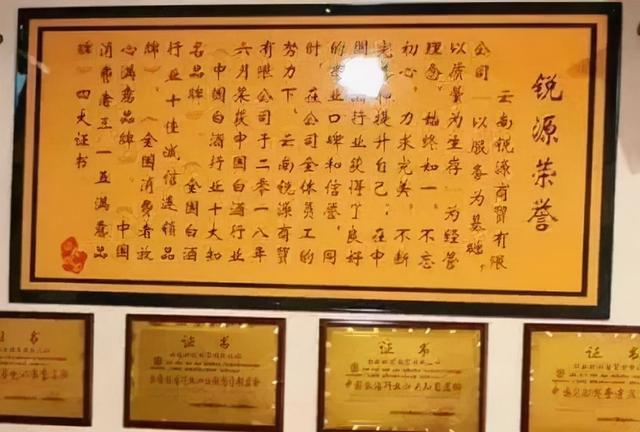 锐源荣誉
云南锐源商贸有限
公司 以服务为基础，
以质量为生存 为经营
理念。始终如一，不忘
初心，力求完美，不断
完善和提升自己。在中
国酒行业获得了良好
的企业口碑和信誉。同
时，在公司全体员工的
努力下，云南锐源商贸
有限公司于二零一八年
六月荣获中国白酒行业
《中国白酒行业十大知
名品牌》《全国白酒
行业十佳诚信连锁品
牌》《全国消费者放
心满意品牌》《中国
消费者三一五满意品
牌》四大证书
书
证书
证书
证书